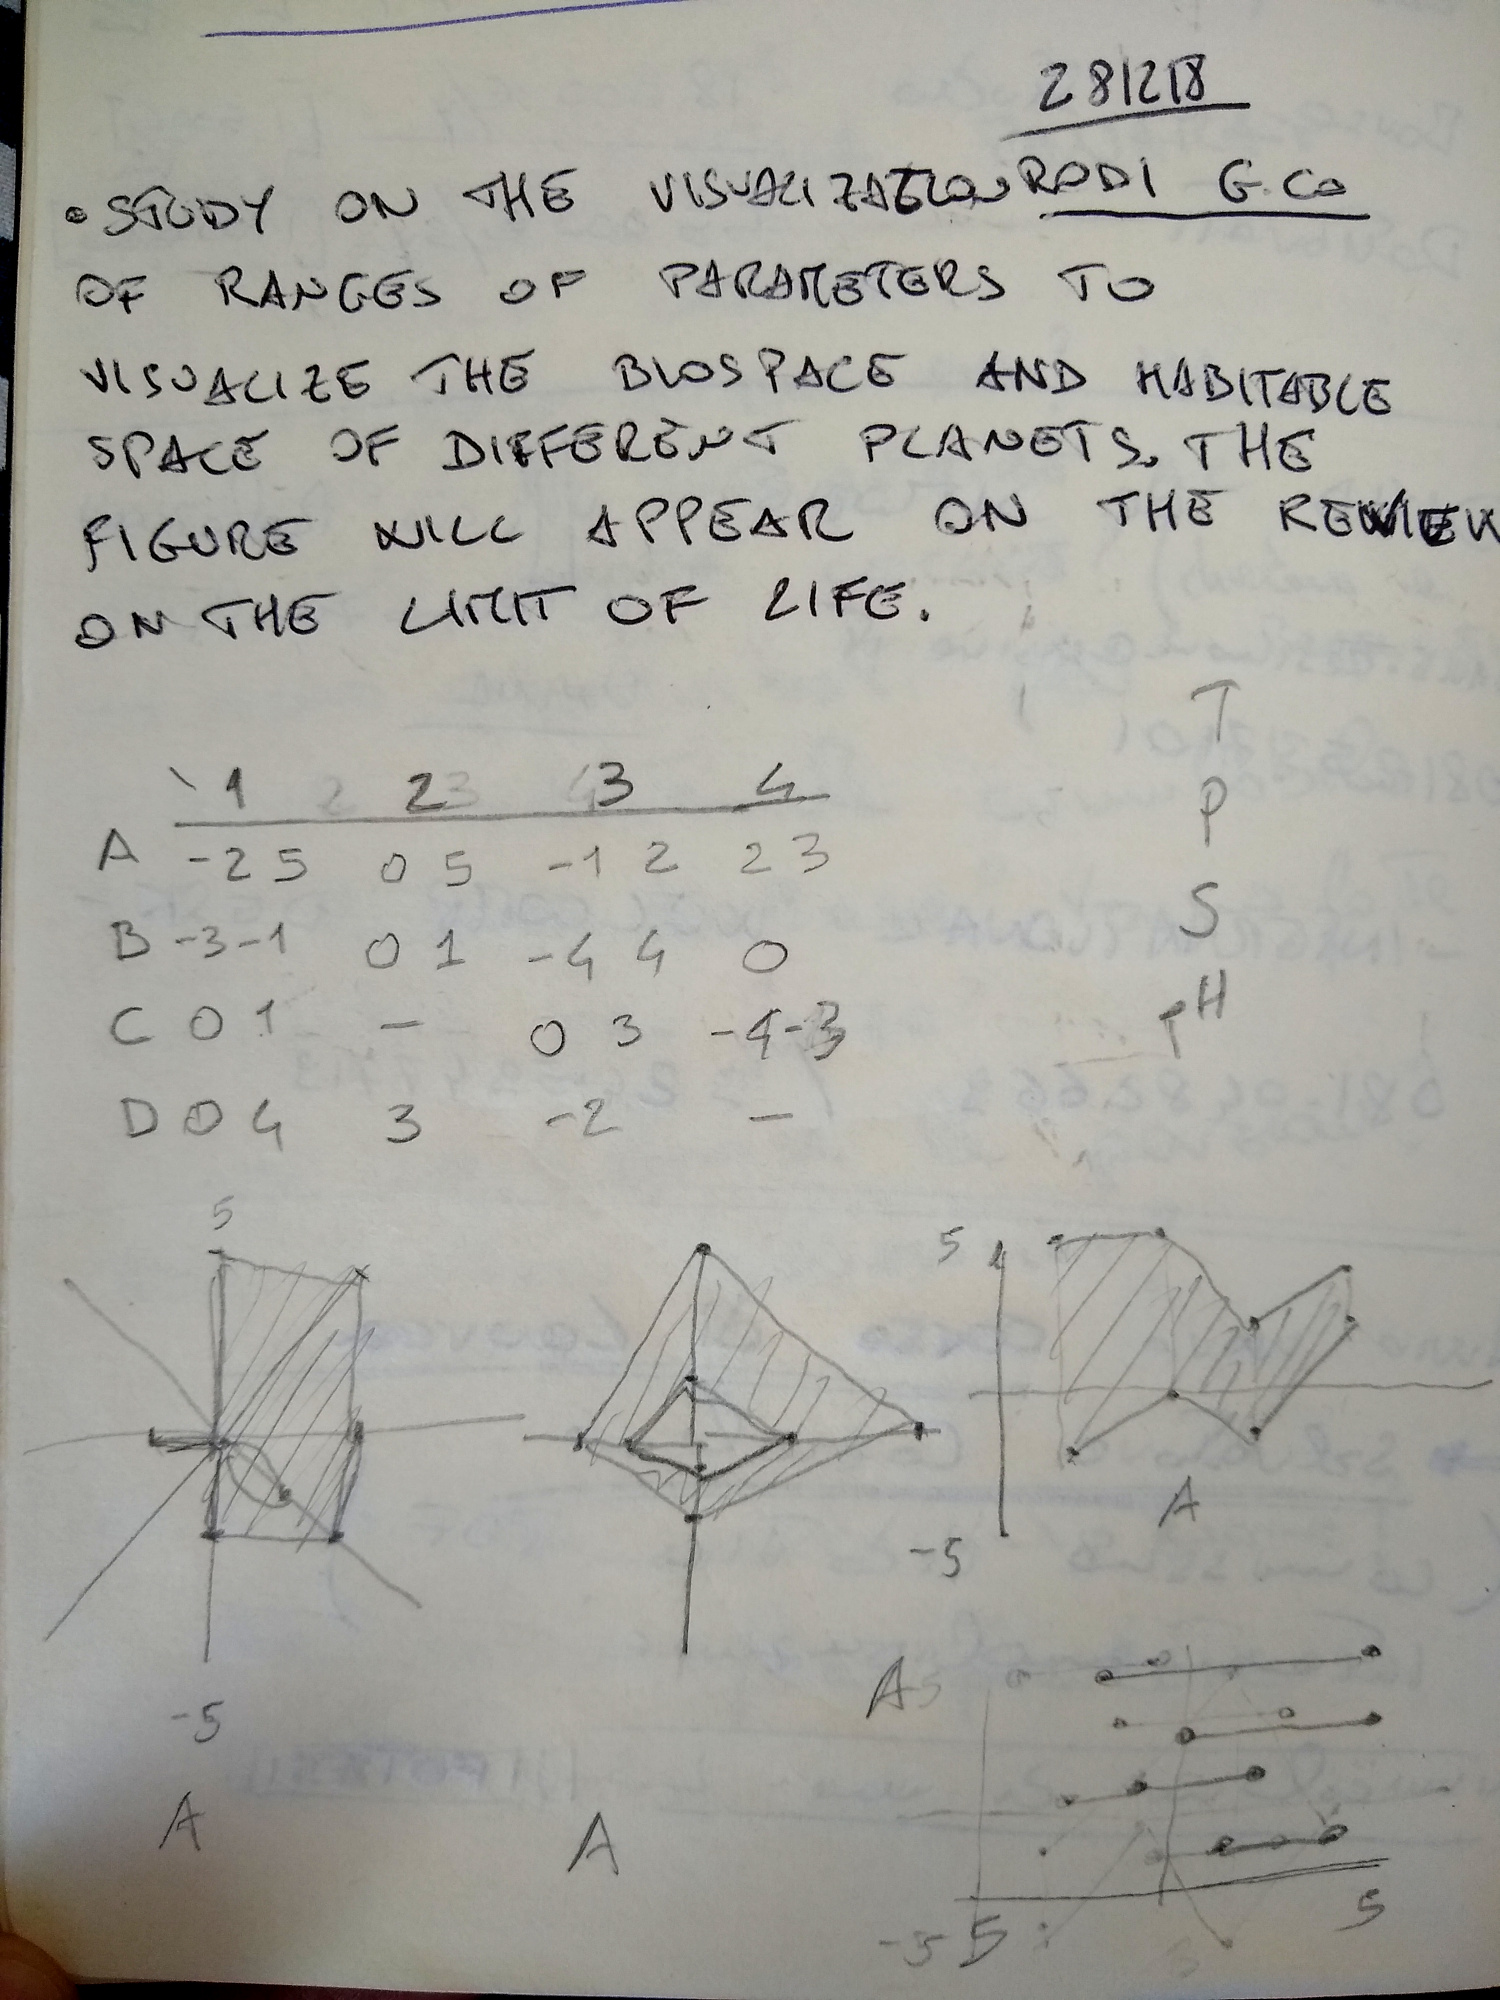 281218
RODI G. Co
• STUDY ON THE VISUALIZATION
OF RANGES OF PARAMETERS TO
VISUALIZE THE BIOSPACE AND HABITABLE
SPACE OF DIFFERENT PLANETS. THE
FIGURE WILL APPEAR ON THE REVIEW
ON THE LIMIT OF LIFE.
T
P
S
pH
1 2 3 4
A -2 5 0 5 -1 2 2 3
B -3 -1 0 1 -4 4 0
C 0 1 - 0 3 -4 -3
D 0 4 3 -2 -
5
5
-5
A
A
-5
-5
5
A
A